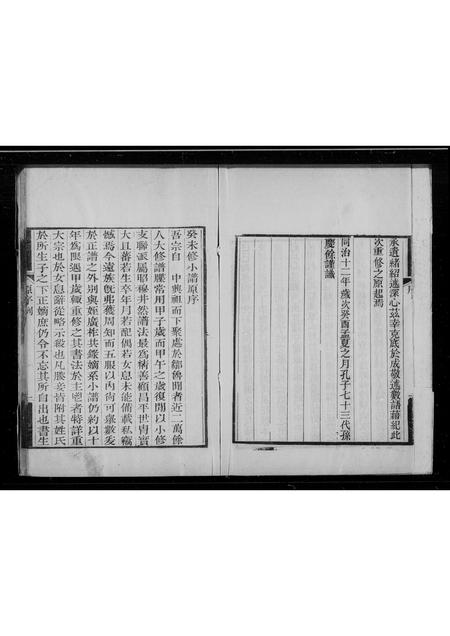 承遺緒紹述深心茲幸克底於成敬述數語藉紀此
次重修之原起焉
同治十二年歲次癸酉孟夏之月孔子七十三代孫
慶餘謹識
序
癸未修小譜原序
吾宗自 中興祖而下聚處於鄒魯閒者近二萬餘
八大修譜牒常用甲子歲而甲午之歲復閒以小修
支聯派屬昭穆井然譜法最為稱善顧昌平世冑實
大且蕃若生卒年月若配偶若女息未能備載私竊
憾焉今遠族旣弗獲周知而五服以內尚可彙數爰
於正譜之外別與姪廣柞共錄嫡系小譜仍約以十
年為限遇甲歲輒重修之其書法於主鬯者特詳重
大宗也於女息辭從略示殺也凡媵妾皆附其姓氏
於所生子之下正嫡庶仍令不忘其所自出也書生